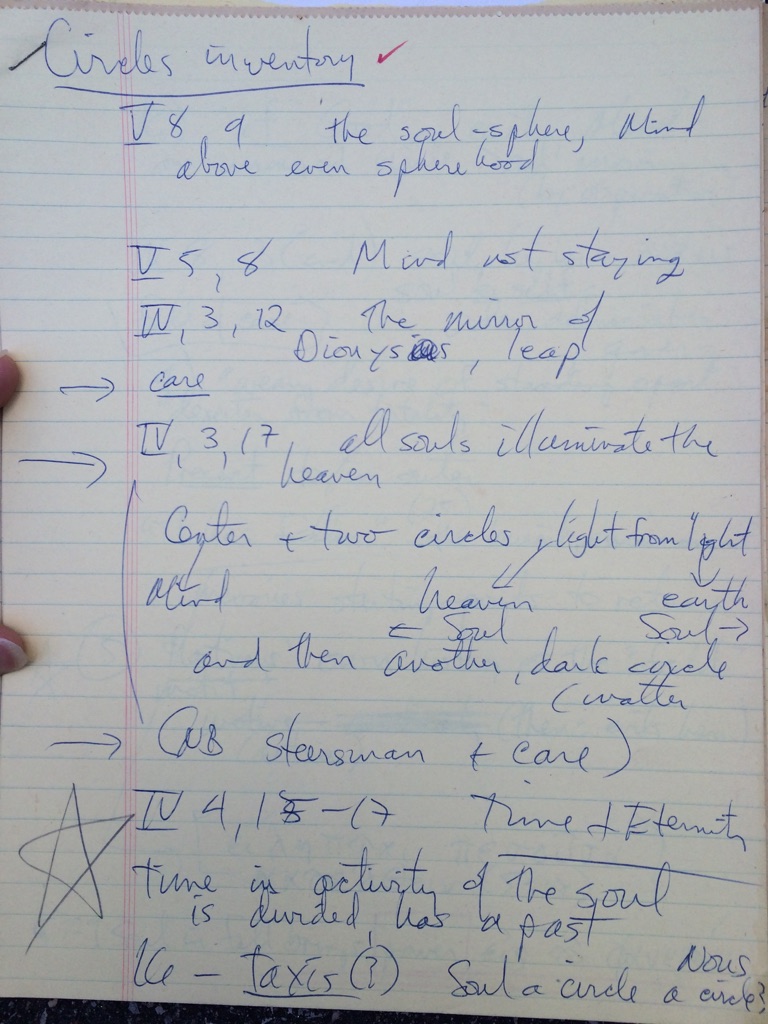 Circles inventory ✓
V 8, 9 the soul-sphere, Mind
above even spherehood
V 5, 8 Mind not staying
IV, 3, 12 the mirror of
Dionysus, leap
→ care
→ IV, 3, 17, all souls illuminate the
heaven
Center + two circles, light from light
Mind heaven earth
← Soul Soul →
and then another, dark circle
(matter
→ (NB steersman + care)
IV 4, 15-17 Time & Eternity
time in activity of the soul
is divided, has a past
16 - taxis (?) Soul a circle Nous a circle?